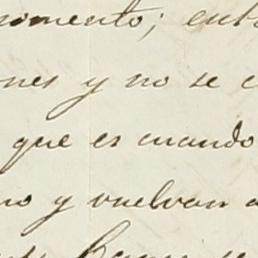 momento; entr
nes y no se c
que es cuando
no y vuelvan a